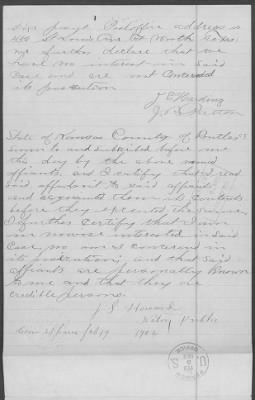 says Postoffice address is
we further declare that we
have no interest in said
Case and are not Concerned
in its prosecution
J. E. Harding
State of Kansas County of Butler
sworn to and subscribed before me
this day by the above named
affiants, and I certify that I read
said affidavit to said affiants
and acquainted them its contents
before they executed the same
I further certify that I am
in nowise interested in said
Case nor am I concerned in
its prosecution; and that said
affiants are personally known
to me and that they are
credible persons.
J. S. Howard
Notary Public
Com Expires Feb 19 1902